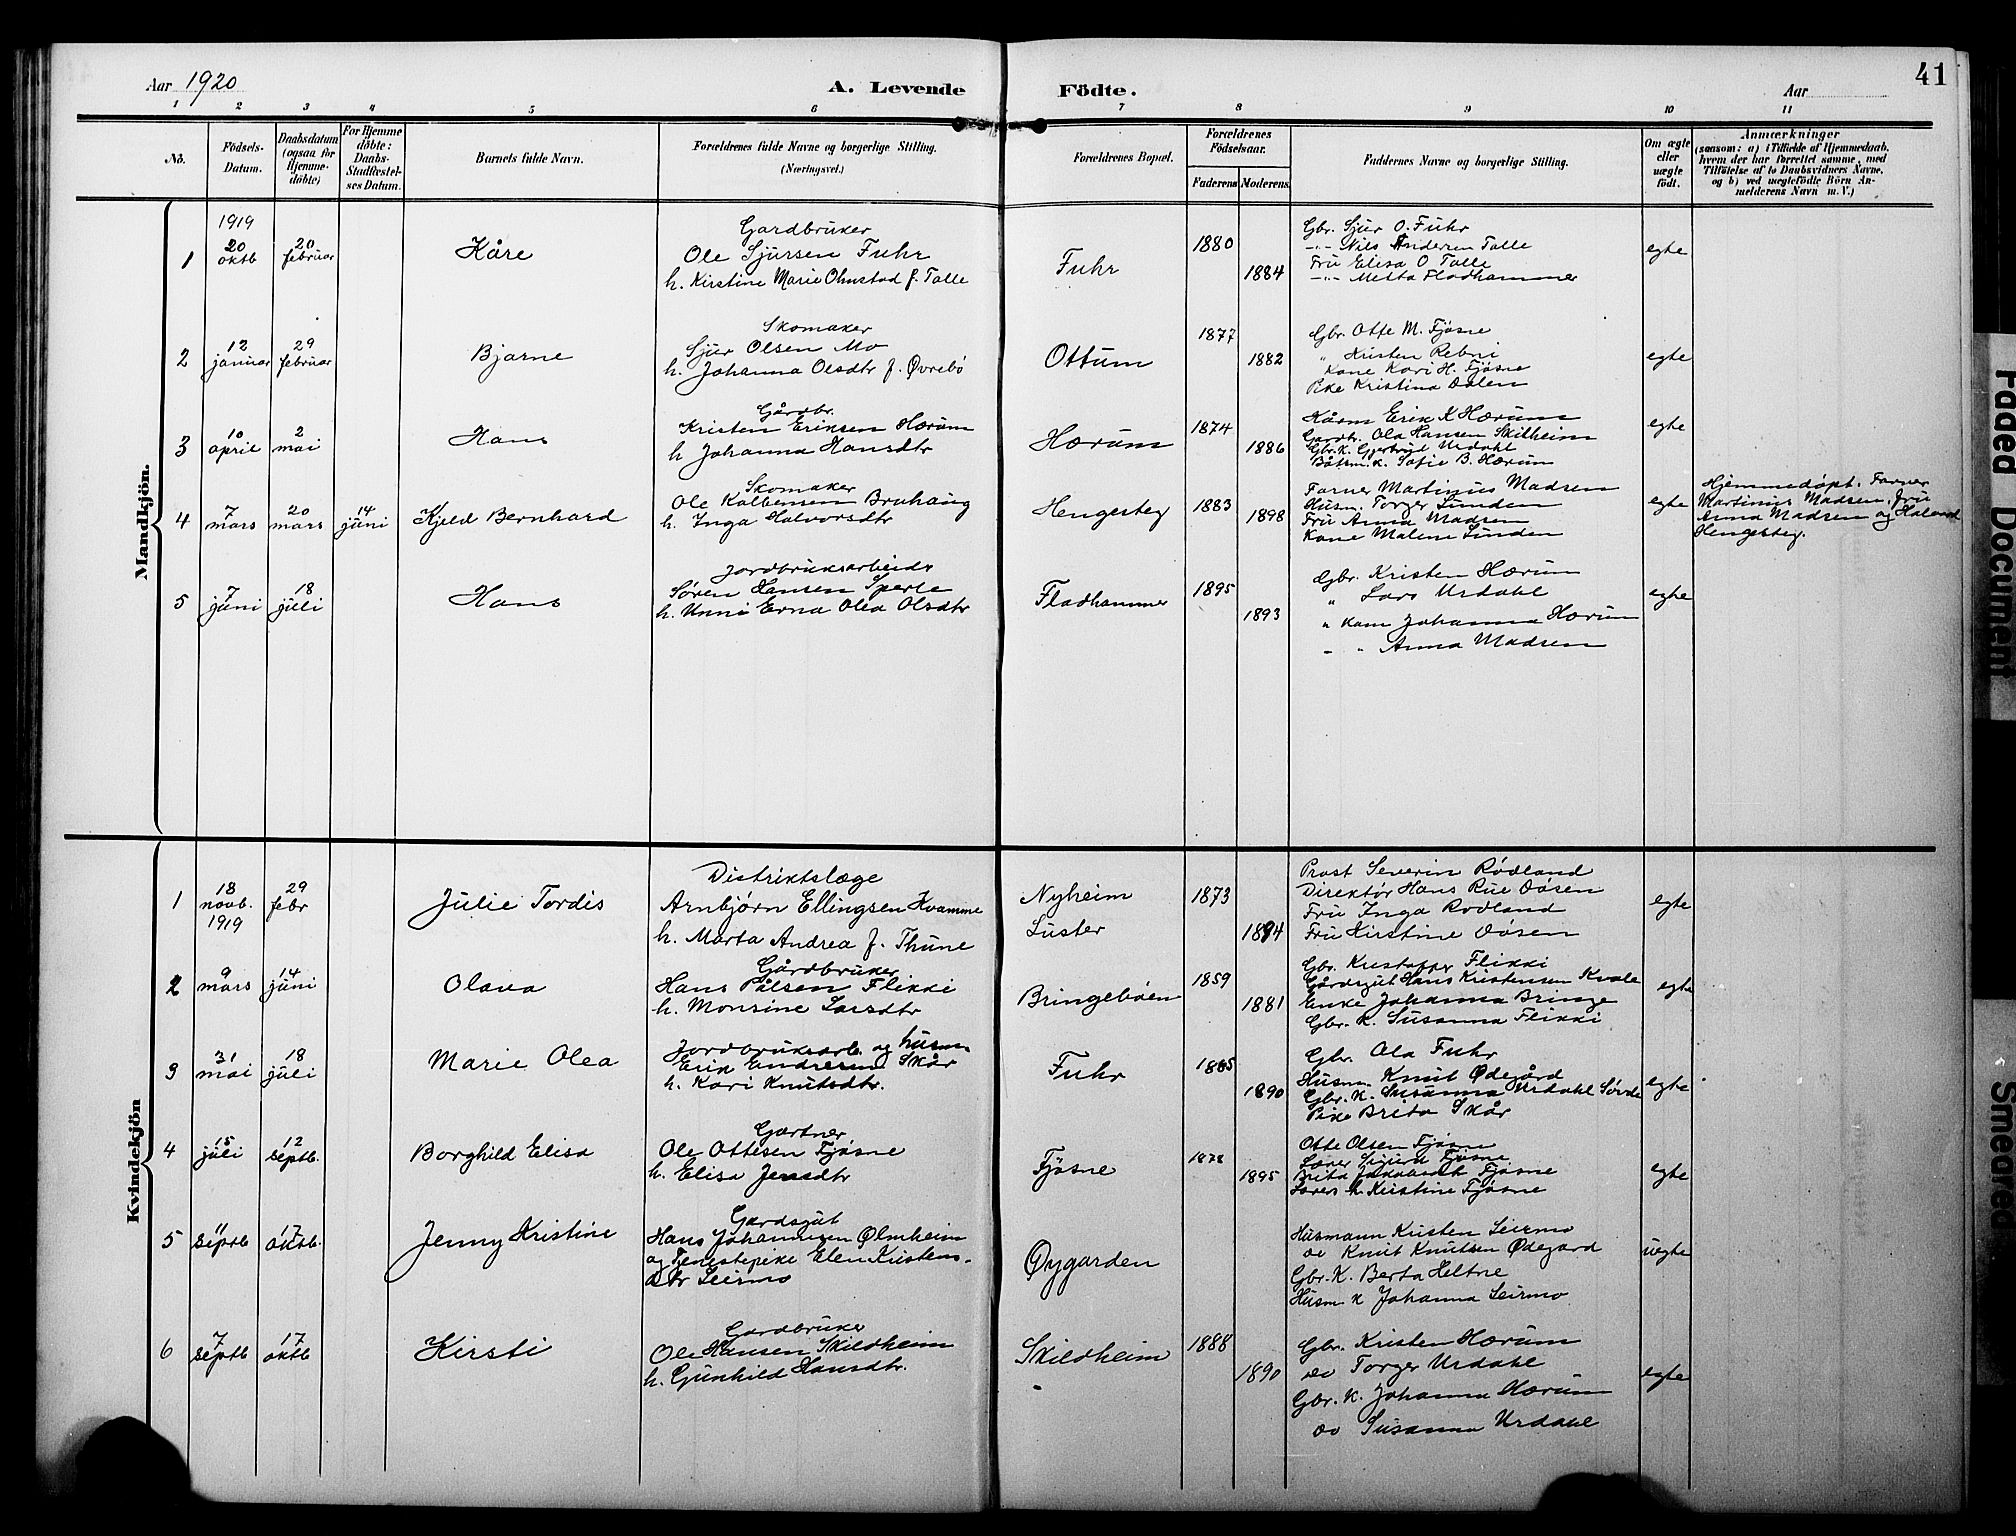 Aar 1920
A. Levende Födte.
Aar
41
1 2 3 4 5 6 7 8 9 10 11
No.
Födsels-Datum.
Daabsdatum (ogsaa for Hjemme-döbte)
For Hjemme döbte: Daabs-Stadfæstel-ses Datum.
Barnets fulde Navn.
Forældrenes fulde Navne og borgerlige Stilling. (Næringsvei.)
Forældrenes Bopæl.
Forældrenes Födselsaar.
Faderens Moderens
Faddernes Navne og borgerlig Stilling.
Om ægte eller uægte födt.
Anmærkninger
(saasom: a) i Tilfælde af Hjemmedaab.
hvem der har forrettet samme, med
Tilföielse af to Daabsvidners Navne,
og b) ved uægtefödte Börn An-
melderens Navn m. V.)
Mandkjön.
1919
1 20 oktb 20 februar Kåre
Gardbruker
Ole Sjursen Fuhr
h. Kirstine Marie Olmstad f. Talle
Fuhr 1880 1884
Gbr. Sjur O. Fuhr
-"- Nils Anderen Talle
Fru Elisa O Talle
-"- Metta Fladhammer
egte
2 12 januar 29 februar Bjarne
Skomaker
Sjur Olsen Mo
h. Johanna Olsdtr f. Øvrebö
Ottum 1877 1882
Gbr. Otte M. Fjøsne
" Kristen Rebni
Kone Kari H. Fjøsne
Pike Kristina Dalen
egte
3 10 april 2 mai Hans
Gårdbr.
Kristen Eriksen Hærum
h Johanna Hansdtr
Hærum 1874 1886
Kårm Erik K Hærum
Gardbr. Ola Hansen Skilheim
Gbr. K. Gjertrud Urdahl
Båtsm. K. Sofie B. Hærum
egte
4 7 mars 20 mars 14 juni Kjeld Bernhard
Skomaker
Ole Kolbensen Bruhaug
h. Inga Halvorsdtr
Hengesteg 1883 1898
Farver Martinus Madsen
Husm. Torger Linden
Fru Anna Madsen
Kone Malene Linden
egte
Hjemmedöpt. Farver
Martinus Madsen, Fru
Anna Madsen og Halvard
Hengesteg.
5 7 juni 18 juli Hans
Jordbruksarbeider
Søren Hansen Sperle
h. Unni Erna Olea Olsdtr
Fladhammer 1895 1893
Gbr. Kristen Hærum
" Lars Urdahl
" Kone Johanna Hærum
- " Anna Madsen
egte
Kvindekjön
1 18 novb. 1919 29 febr Julie Tordis
Distriktslæge
Arnbjørn Ellingsen Kvamme
h. Marta Andrea f. Thune
Nyheim Luster 1873 1894
Prost Severin Rödland
Direktör Hans Rue Dösen
Fru Inga Rodland
Fru Kirstine Dösen
egte
2 9 mars 14 juni Olava
Gårdbruker
Hans Pålsen Flikki
h. Monsine Larsdtr
Bringebøen 1859 1881
Gbr. Kristoffer Flikki
Gårdsgut Hans Kristensen Kvale
Enke Johanna Bringe
Gbr. K. Susanna Flikki
egte
3 31 mai 18 juli Marie Olea
Jordbruksarb. og husm
Erik Endresen Skår
h. Kari Knutsdtr.
Fuhr 1885 1890
Gbr. Ola Fuhr
Husm. Knut Ødegård
Gbr. K. Susanna Urdahl Sørde
Pike Brita Skår
egte
4 15 juli 12 septb. Borghild Elisa
Gartner
Ole Ottesen Fjøsne
h. Elisa Jensdtr
Fjøsne 1878 1895
Otte Olsen Fjøsne
Lærer Sigurd Fjøsne
Brita Fjøsne
Lærers h Kristine Fjøsne
egte
5 11 septb 17 oktb. Jenny Kristine
Gardsgut
Hans Johannesen Ølmheim
og Tenestepike Elen Kristens-
dtr Leirmo
Øygarden
Husmann Kristen Leirmo
do Knut Knutsen Ødegard
Gbr. K. Berta Heltne
Husm K Johanna Leirmo
uegte
6 7 septb 17 oktb Kirsti
Gardbruker
Ole Hansen Skildheim
h. Gunhild Hansdtr.
Skildheim 1888 1890
Gbr. Kristen Hærum
do Torger Urdahl
Gbr. K. Johanna Hærum
do Susanna Urdahl
egte
Faded Document
Smeared.